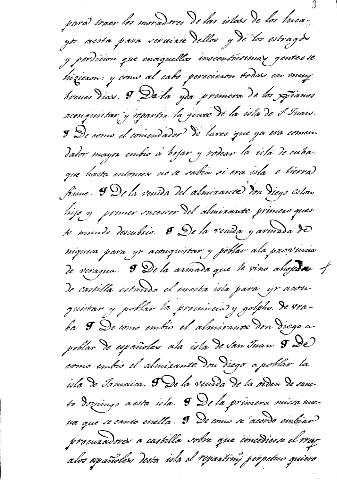 3
para traer los moradores de las islas de los luca-
yos a esta para servirse dellos y de los estragos
y perdicion que en aquellas inocentisimas gentes se
hizieron: y como al cabo perecieron todas en muy
breves dias. ¶ De la yda primera de los xpianos
a conquistar y repartir la gente de la isla de S. Juan.
¶ De como el comendador de lares que ya era comen-
dador mayor embio á bojar y rodear la isla de cuba
que hasta entonces no se sabia si era isla o tierra
firme. ¶ De la venida del almirante don diego colon
hijo y primer sucesor del almirante primero que es-
te mundo descubrio. ¶ De la venida y armada de
niquesa para yr a conquistar y poblar a la provincia
de veragua. ¶ De la armada que le vino a hojeda
de castilla estando el en esta isla para yr a con-
quistar y poblar la provincia y golpho de ura-
ba ¶ De como embio el almirante don diego a
poblar de españoles a la isla de San Juan ¶ De
como embio el almirante don diego a poblar la
isla de Jamaica. ¶ De la venida de la orden de sanc-
to domingo a esta isla. ¶ De la primera misa nue-
va que se canto en ella. ¶ De como se acordo embiar
procuradores a castilla sobre que concediese el rey
a los españoles desta isla el repartimi perpetuo